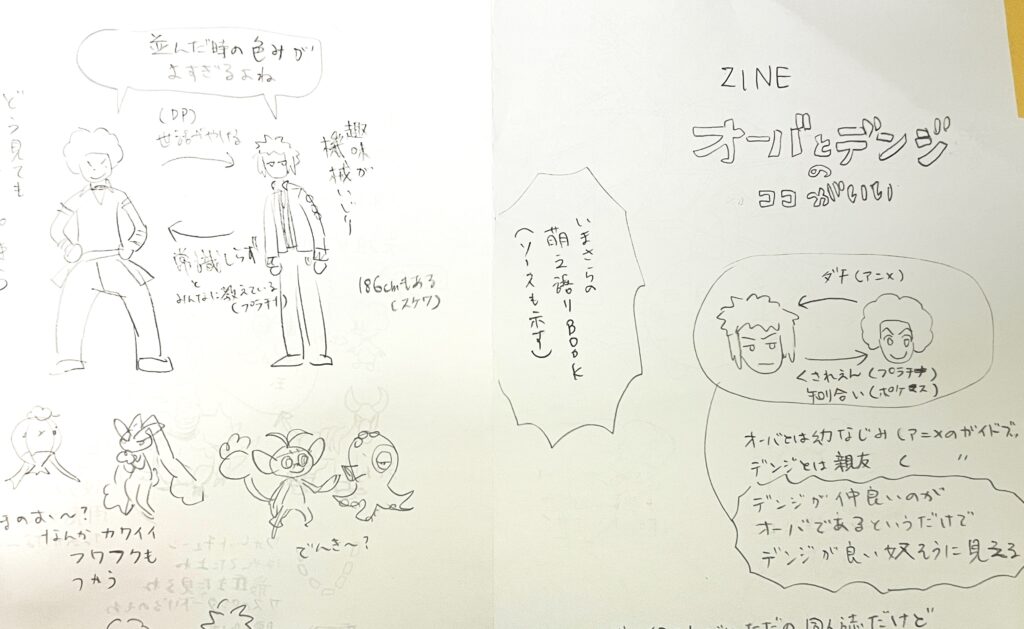 並んだ時の色みが
よすぎるよね
どう見ても
(DP)
世話がやける
趣味が
機械いじり
常識しらず
と
みんなに教えている
(プラチナ)
186cmもある
(スケワ)
なんか カワイイ
フワフワも
つかう
でんき〜?
ZINE
オーバとデンジ
の
ココがいい
いまさらの
萌え語りBOOK
(ソースも示す)
ダチ(アニメ)
くされえん(プラチナ)
知り合い(ポケマス)
オーバとは幼なじみ(アニメのガイドブ
デンジとは親友 ( 〃
デンジが仲良いのが
オーバであるというだけで
デンジが良い奴そうに見える
ただの同人誌だけど